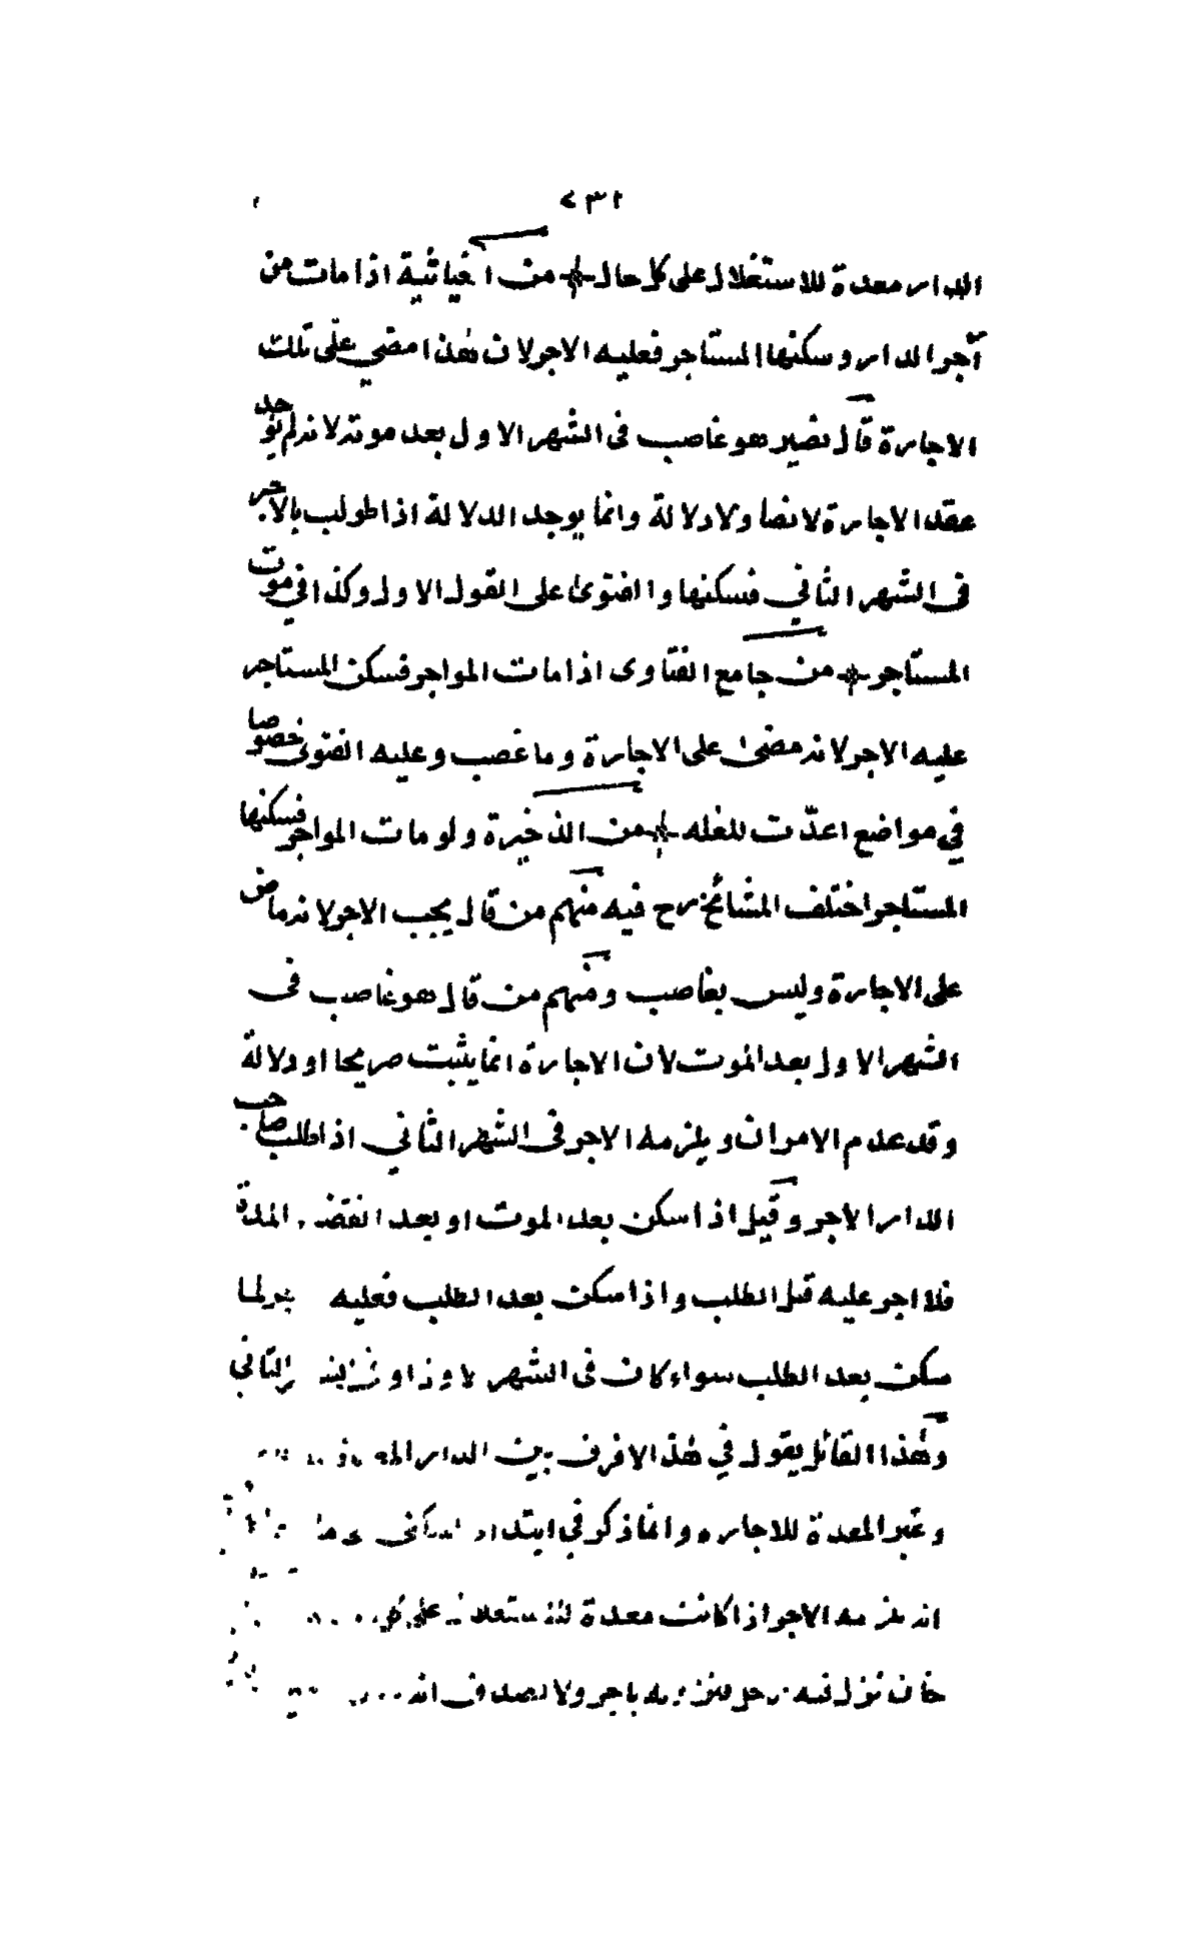 ٧٣١
الدار معدة للاستغلال على كل حال من الغياثية اذا مات من
آجر الدار وسكنها المستاجر فعليه الاجر لان هذا مضي على تلك
الاجارة قال نصير هو غاصب فى الشهر الاول بعد موته لانه لم يوجد
عقد الاجارة لا نصا ولا دلالة وانما يوجد الدلالة اذا طولب بالاجر
فى الشهر الثاني فسكنها والفتوى على القول الاول وكذا في موت
المستاجر من جامع الفتاوى اذا مات المواجر فسكن المستاجر
عليه الاجر لانه مضى على الاجارة وما غصب وعليه الفتوى خصوصا
في مواضع اعدّت للغله من الذخيرة ولو مات المواجر فسكنها
المستاجر اختلف المشائخ رح فيه منهم من قال يجب الاجر لانه ماض
على الاجارة وليس بغاصب ومنهم من قال هو غاصب فى
الشهر الاول بعد الموت لان الاجارة انما يثبت صريحا او دلالة
وقد عدم الامران ويلزمه الاجر فى الشهر الثاني اذا طلب صاحب
الدار الاجر وقيل اذا سكن بعد الموت او بعد انقضاء المدة
فلا اجر عليه قبل الطلب واذا سكن بعد الطلب فعليه
سكن بعد الطلب سواء كان فى الشهر الثاني
وهذا القائل يقول في هذا لا فرق بين الدار
وغير المعدة للاجاره وانما ذكر في ابتداء السكنى
انه يلزمه الاجر اذا كانت معدة للاستغلال على
خان نزل فيه رجل باجر ولا يصدق انه